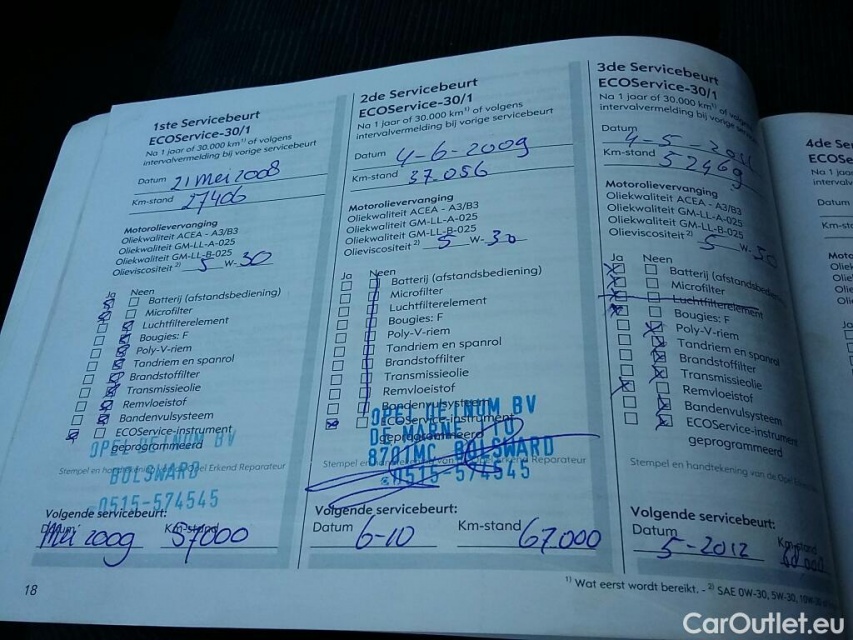 1ste Servicebeurt
ECOService-30/1
Na 1 jaar of 30.000 km¹⁾ of volgens
intervalvermelding bij vorige servicebeurt
Datum 21 Mei 2008
Km-stand 27406
Motorolievervanging
Oliekwaliteit ACEA - A3/B3
Oliekwaliteit GM-LL-A-025
Oliekwaliteit GM-LL-B-025
Olieviscositeit ²⁾ 5 W- 30
Ja Neen
Batterij (afstandsbediening)
Microfilter
Luchtfilterelement
Bougies: F
Poly-V-riem
Tandriem en spanrol
Brandstoffilter
Transmissieolie
Remvloeistof
Bandenvulsysteem
ECOService-instrument
geprogrammeerd
OPEL DE JNUM BV
BOLSWARD
0515-574545
Volgende servicebeurt:
Datum Km-stand
Mei 2009 57000
18
2de Servicebeurt
ECOService-30/1
Na 1 jaar of 30.000 km¹⁾ of volgens
intervalvermelding bij vorige servicebeurt
Datum 4-6-2009
Km-stand 37.056
Motorolievervanging
Oliekwaliteit ACEA - A3/B3
Oliekwaliteit GM-LL-A-025
Oliekwaliteit GM-LL-B-025
Olieviscositeit ²⁾ 5 W- 30
Ja Neen
Batterij (afstandsbediening)
Microfilter
Luchtfilterelement
Bougies: F
Poly-V-riem
Tandriem en spanrol
Brandstoffilter
Transmissieolie
Remvloeistof
Bandenvulsysteem
ECOService-instrument
geprogrammeerd
OPEL DE JNUM BV
DE MARNE
8701MC BOLSWARD
0515-574545
Stempel en Reparateur
Volgende servicebeurt:
Datum Km-stand
6-10 67.000
3de Servicebeurt
ECOService-30/1
Na 1 jaar of 30.000 km¹⁾ of volgens
intervalvermelding bij vorige servicebeurt
Datum 4-5-2011
Km-stand 52469
Motorolievervanging
Oliekwaliteit ACEA - A3/B3
Oliekwaliteit GM-LL-A-025
Oliekwaliteit GM-LL-B-025
Olieviscositeit ²⁾ 5 W- 30
Ja Neen
Batterij (afstandsbediening
Microfilter
Luchtfilterelement
Bougies: F
Poly-V-riem
Tandriem en spanrol
Brandstoffilter
Transmissieolie
Remvloeistof
Bandenvulsysteem
ECOService-instrument
geprogrammeerd
Stempel en handtekening van de Opel
Volgende servicebeurt:
Datum
5-2012
¹⁾ Wat eerst wordt bereikt. - ²⁾ SAE 0W-30, 5W-30,
4de Se
ECOSe
Na 1 jaar
interval
Datum
Km-st
CarOutlet.eu